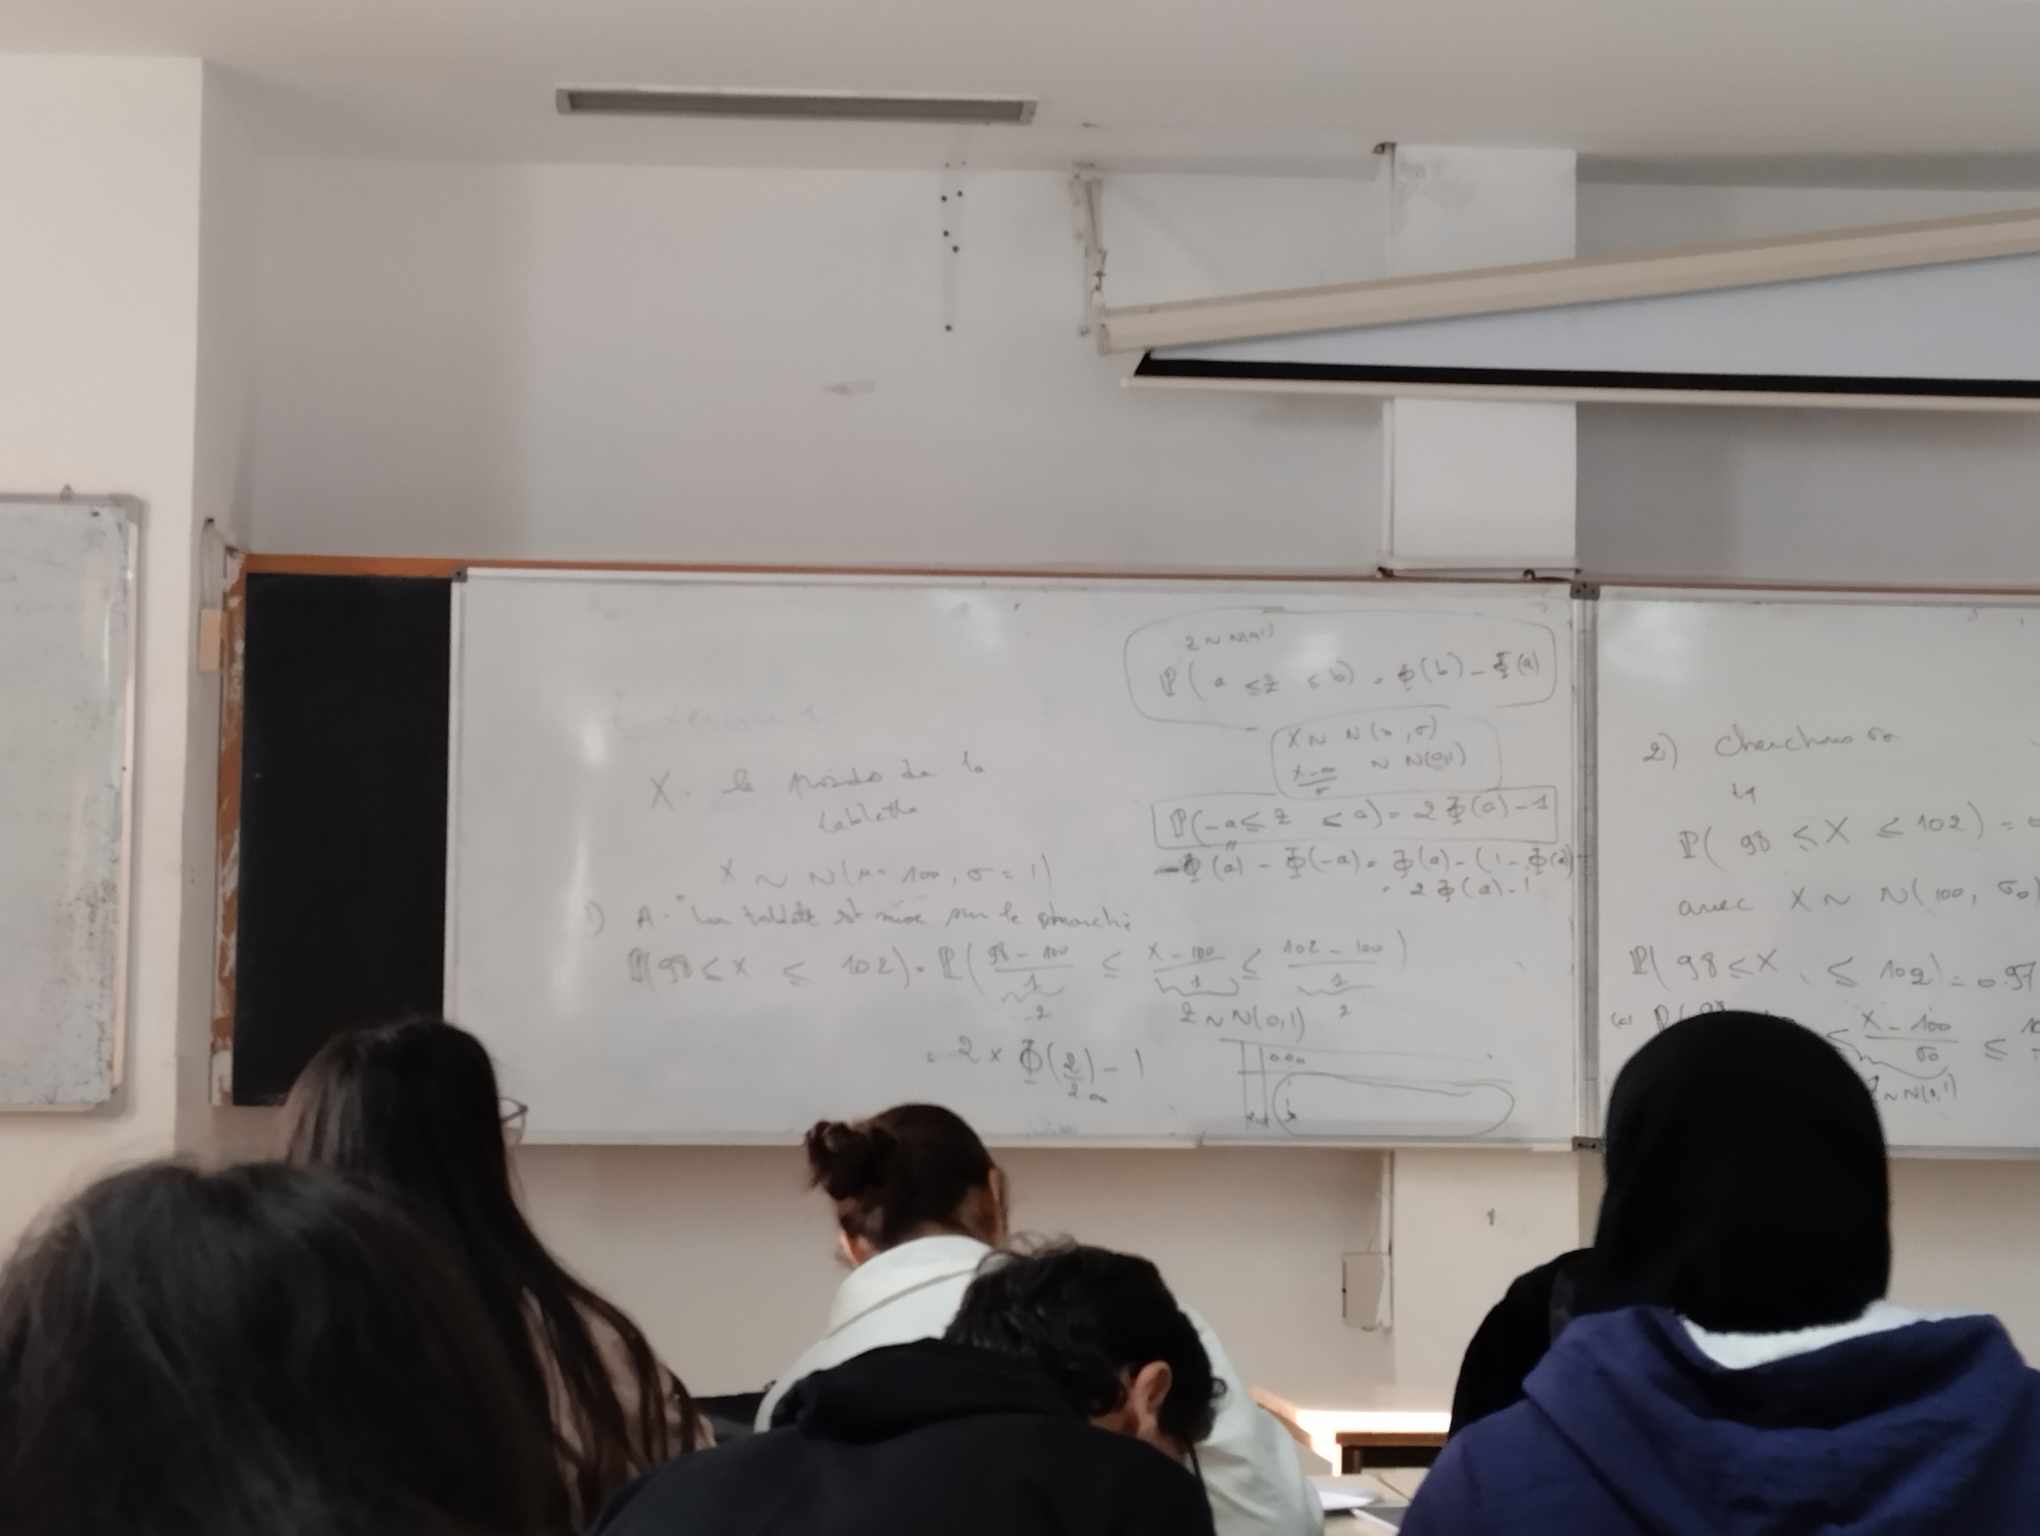 X : le poids de la
tablette
X ~ N(μ = 100, σ = 1)
1) A = "La tablette est mise sur le marché
P(98 ≤ X ≤ 102) = P( (98 - 100)/1 ≤ (X - 100)/1 ≤ (102 - 100)/1 )
-2 Z ~ N(0,1) 2
= 2 × Φ(2) - 1
Z ~ N(0,1)
P( a ≤ Z ≤ b) = Φ(b) - Φ(a)
X ~ N(m, σ)
(X - m)/σ ~ N(0,1)
P(-a ≤ Z ≤ a) = 2Φ(a) - 1
Φ(a) - Φ(-a) = Φ(a) - (1 - Φ(a)
= 2Φ(a) - 1
2) Cherchons σ0
P( 98 ≤ X ≤ 102) =
avec X ~ N(100, σ0)
P( 98 ≤ X ≤ 102) = 0.97
P( 98 ≤ (X - 100)/σ0 ≤
Z ~ N(0,1)